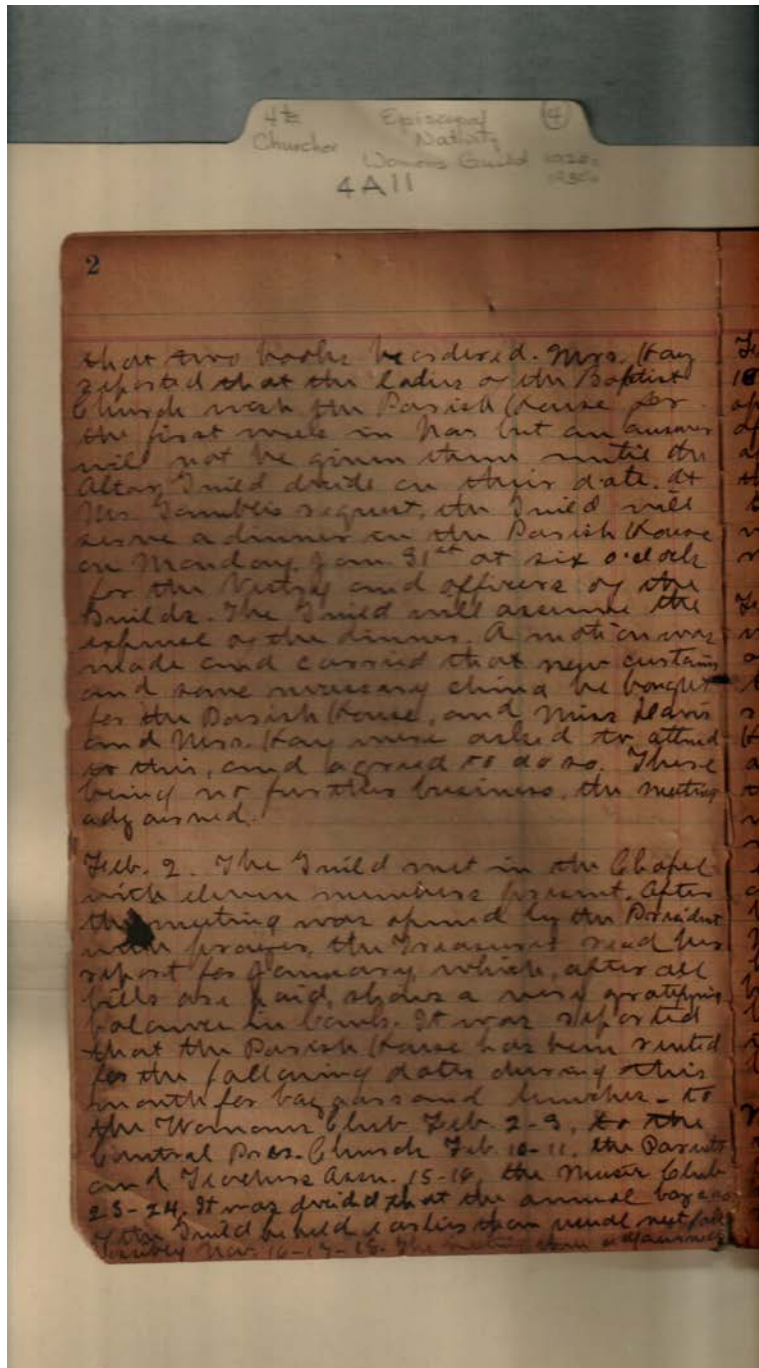 4th Episcopal 4
Churches Nativity
Womens Guild 1920s
4A11 1930s
2
that two books be ordered. Mrs. Kay
reported that the ladies of the Baptist
Church wish the Parish House for
the first week in Nov. but an answer
will not be given them until the
Altar Guild decide on their date. At
Mr. Gamble's request, the Guild will
serve a dinner in the Parish House
on Monday, Jan. 31st at six o'clock
for the Vestry and officers of the
Guilds. The Guild will assume the
expense of the dinner. A motion was
made and carried that new curtains
and some necessary china be bought
for the Parish House, and Miss Davis
and Mrs. Kay were asked to attend
to this, and agreed to do so. There
being no further business, the meeting
adjourned.
Feb. 2. The Guild met in the Chapel
with eleven members present. After
the meeting was opened by the President
with prayer, the Treasurer read her
report for January, which, after all
bills are paid, shows a very gratifying
balance in bank. It was reported
that the Parish House has been rented
for the following dates during this
month for bazaars and lunches - to
the Womans Club Feb. 2-3, to the
Central Pres. Church Feb. 10-11, the Parents
and Teachers Assn. 15-16, the Music Club
23-24. It was decided that the annual bazaar
of the Guild be held earlier than usual next fall
namely Nov. 16-17-18. The meeting then adjourned.